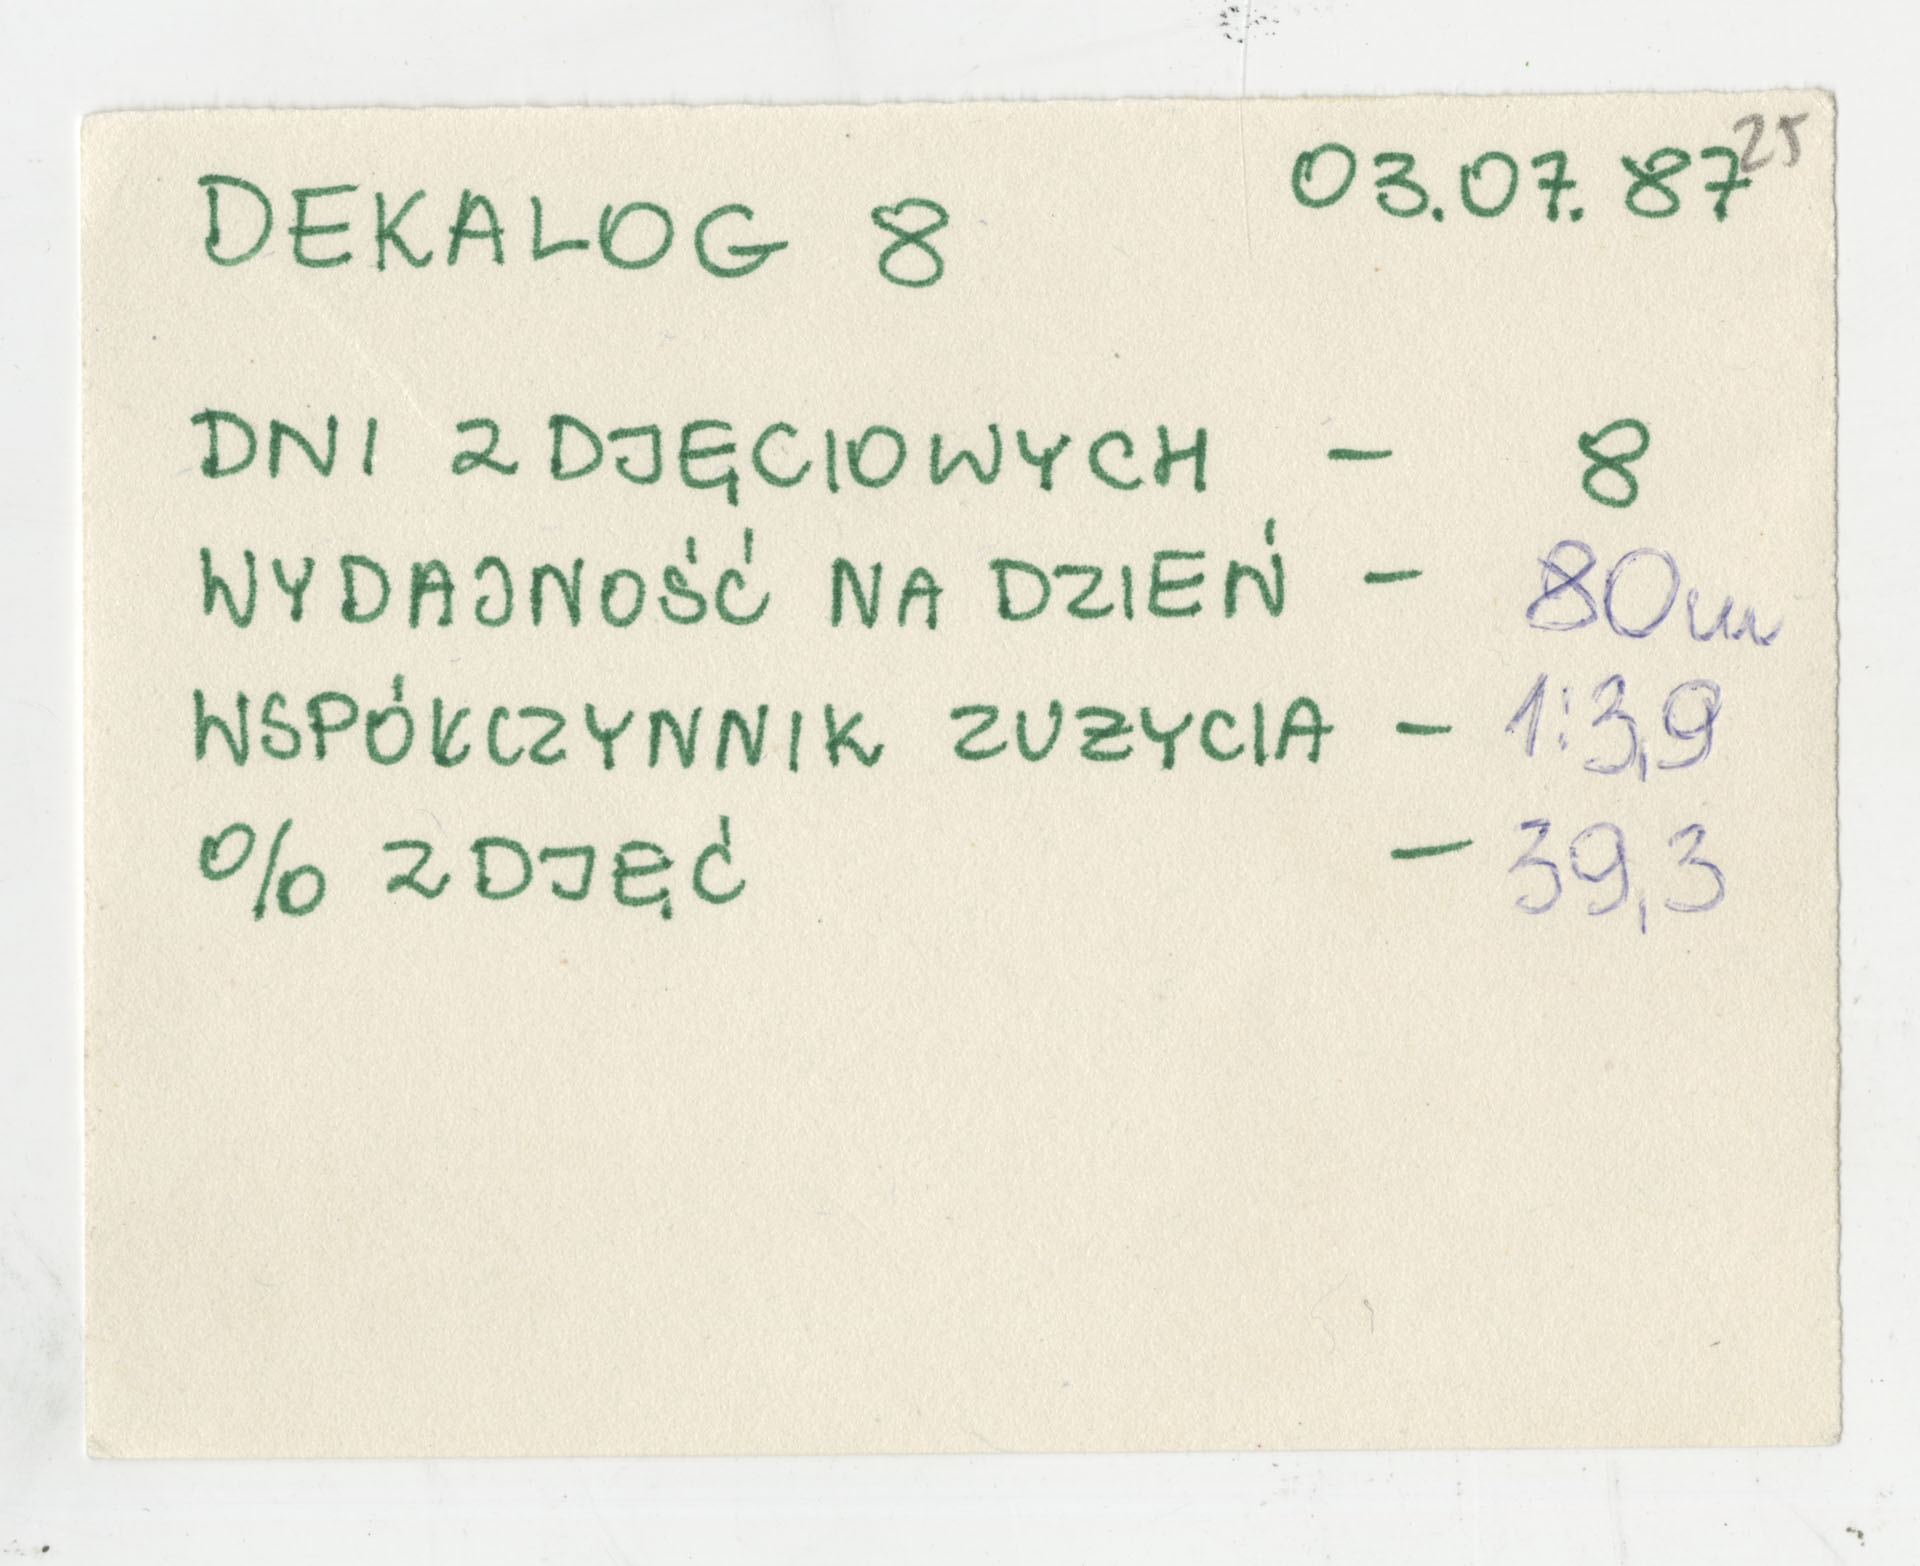 25
DEKALOG 8 03.07.87
DNI ZDJĘCIOWYCH - 8
WYDAJNOŚĆ NA DZIEŃ - 80m
WSPÓŁCZYNNIK ZUŻYCIA - 1:3,9
% ZDJĘĆ - 39,3